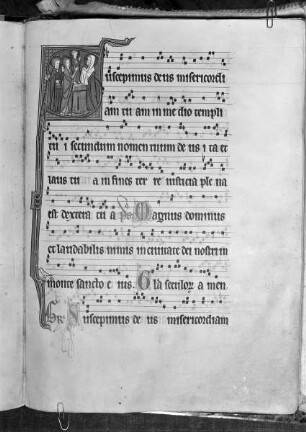 uscepimus deus misericordi
am tu am in me dio templi
tu i secundum nomen tuum de us i ta et
laus tu a in fines ter re iusticia ple na
est dextera tu a ps Magnus dominus
et laudabilis nimis in ciuitate dei nostri in
monte sancto e ius. Gla seculor a men
Suscepimus de us misericordiam